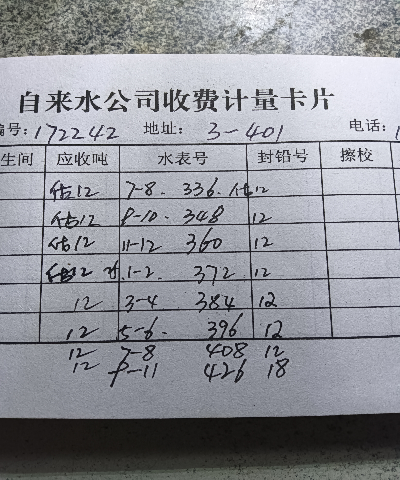 自来水公司收费计量卡片
编号:172242 地址: 3-401 电话:1
生间 应收吨 水表号 封铅号 擦校
估12 7-8. 336. 估12
估12 9-10. 348 12
估12 11-12 360 12
估12 .1-2. 372 12
12 3-4 384 12
12 5-6. 396 12
12 7-8 408 12
12 9-11 426 18